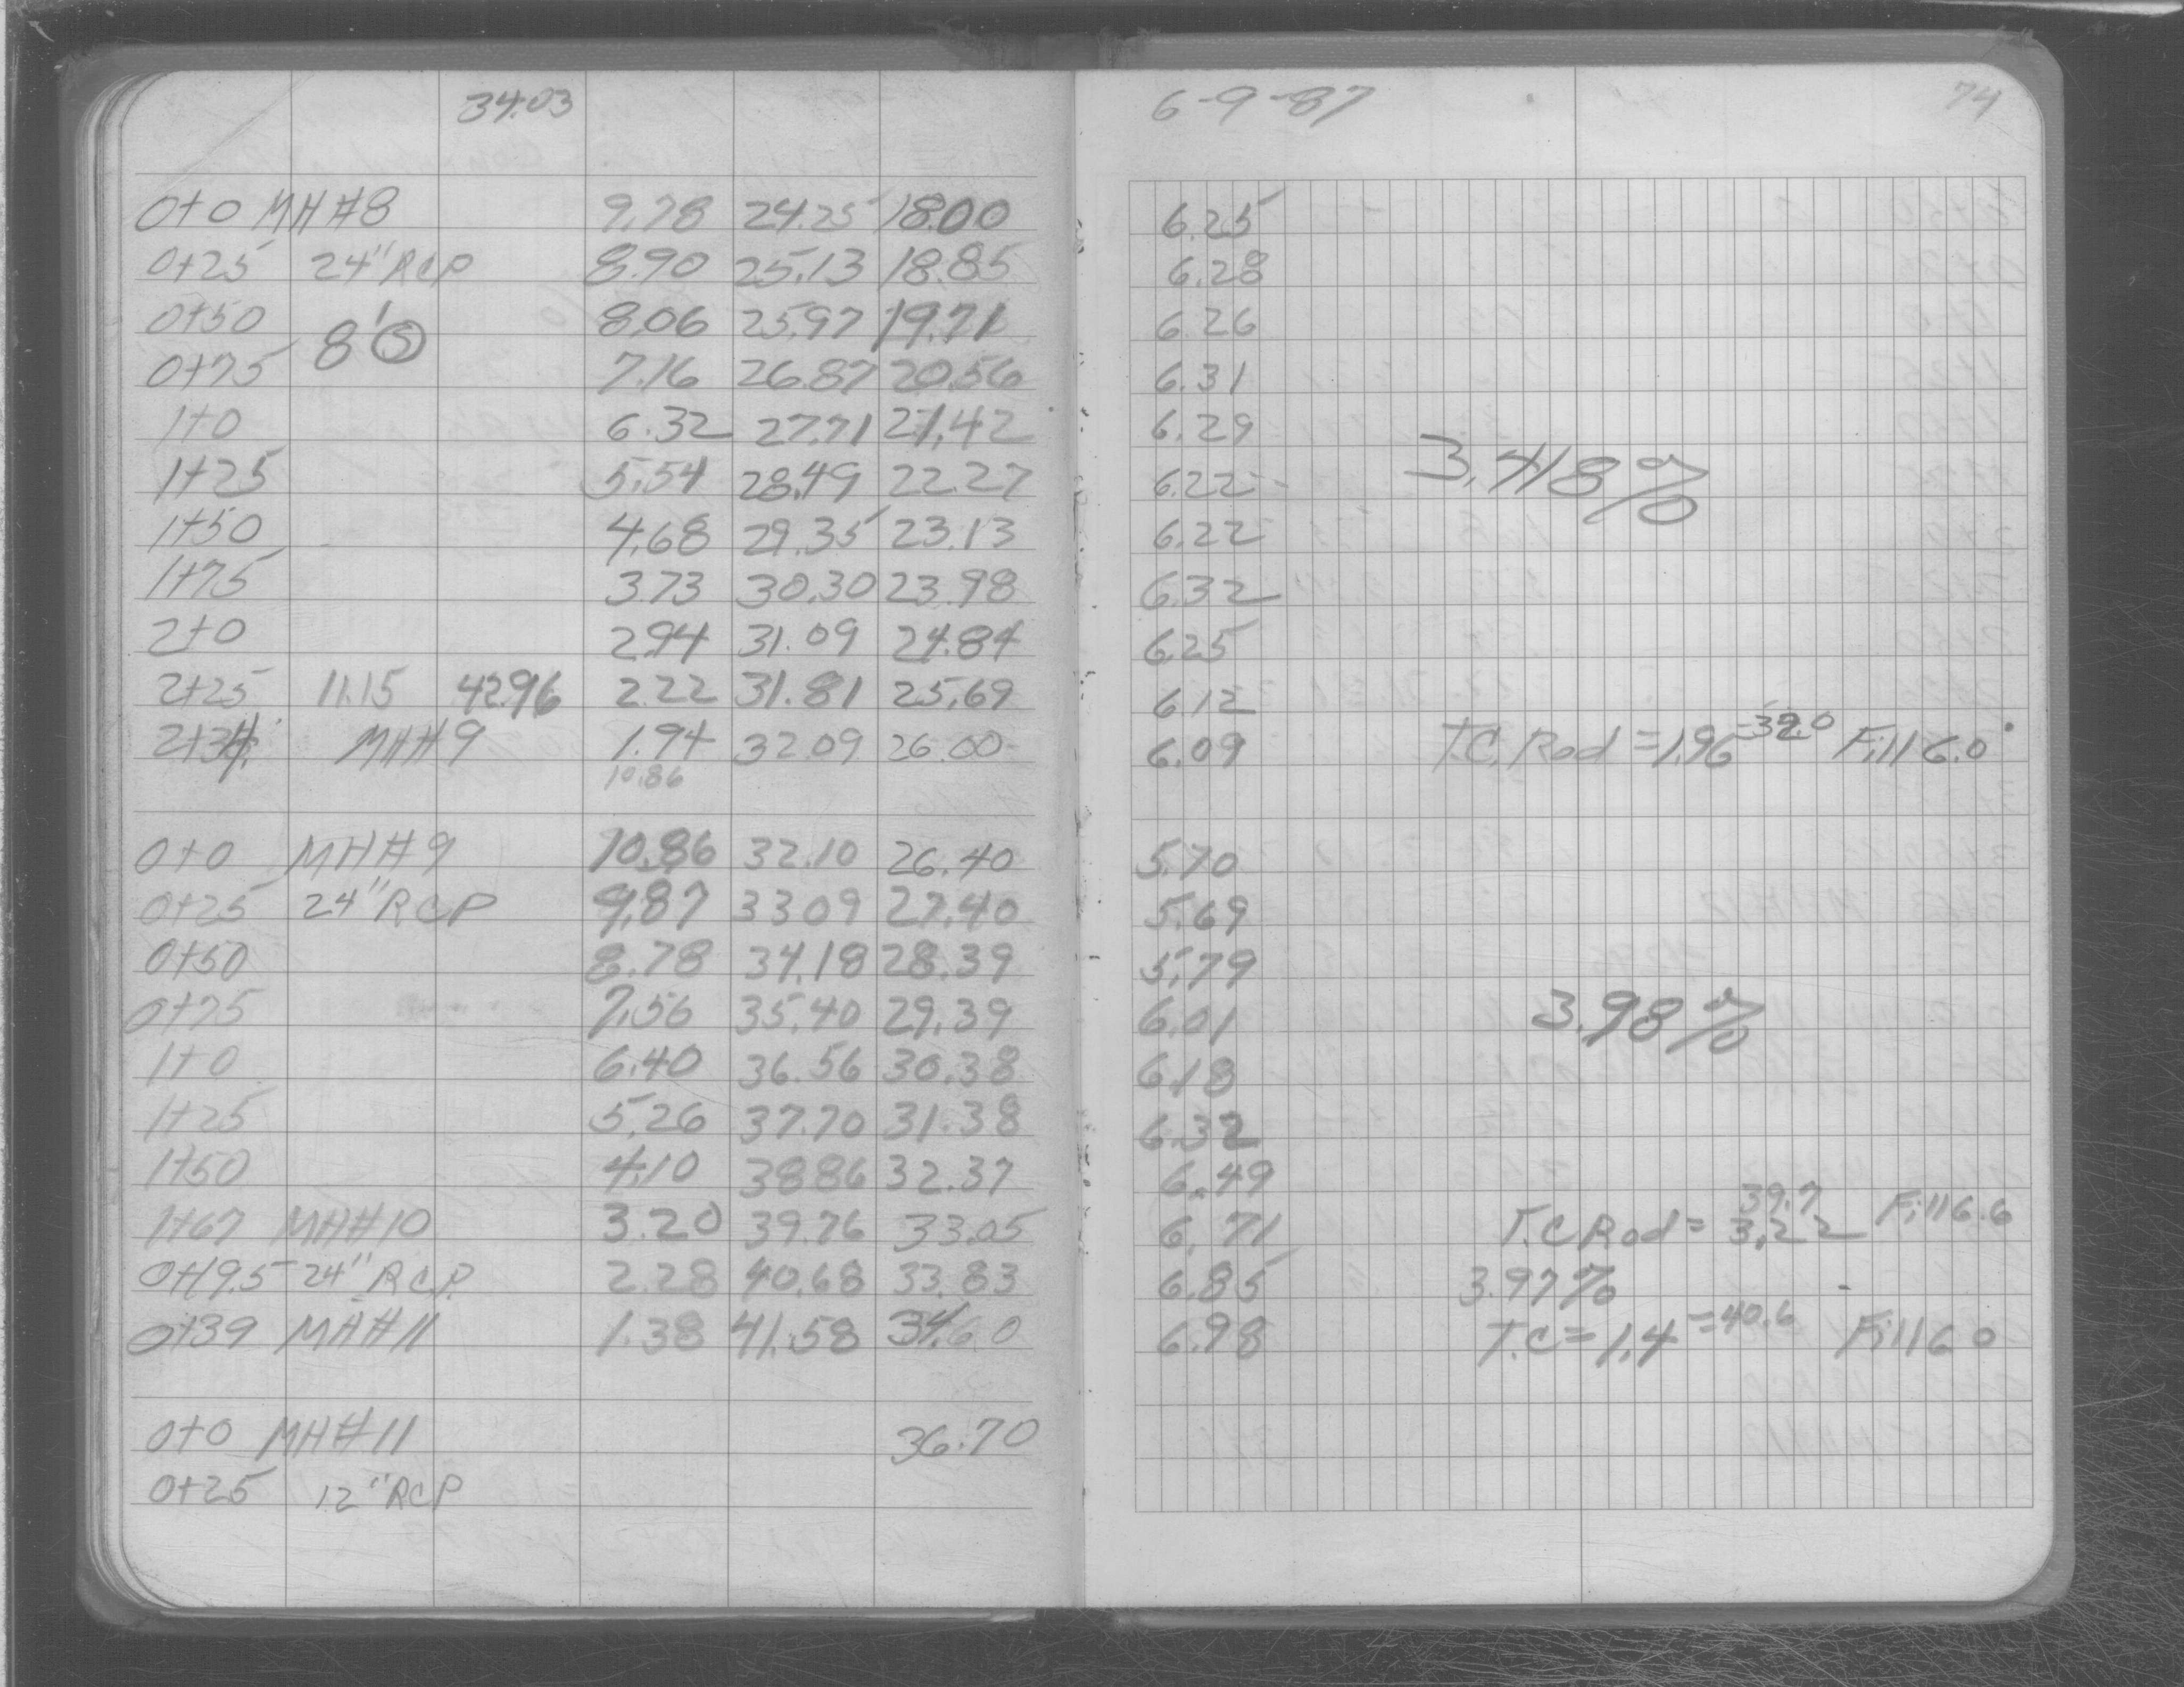 34.03
0+0 MH#8 9.78 24.25 18.00
0+25 24" RCP 8.90 25.13 18.85
0+50 8.06 25.97 19.71
8' Ⓢ
0+75 7.16 26.87 20.56
1+0 6.32 27.71 21.42
1+25 5.54 28.49 22.27
1+50 4.68 29.35 23.13
1+75 3.73 30.30 23.98
2+0 2.94 31.09 24.84
2+25 11.15 42.96 2.22 31.81 25.69
MH#9 1.94 32.09 26.00
10.86
0+0 MH#9 10.86 32.10 26.40
0+25 24" RCP 9.87 33.09 27.40
0+50 8.78 34.18 28.39
0+75 7.56 35.40 29.39
1+0 6.40 36.56 30.38
1+25 5.26 37.70 31.38
1+50 4.10 38.86 32.37
1+67 MH#10 3.20 39.76 33.05
0+19.5 24" R.C.P. 2.28 40.68 33.83
0+39 MH#11 1.38 41.58 34.60
0+0 MH#11 36.70
0+25 12" RCP
6-9-87 74
6.25
6.28
6.26
6.31
6.29
3.418%
6.22
6.22
6.32
6.25
6.12
6.09 T.C. Rod = 1.96 = 32.0 Fill 6.0
5.70
5.69
5.79
6.01 3.98%
6.18
6.32
6.49
6.71 T.C Rod = 3.22 39.7 Fill 6.6
6.85 3.97%
6.98 T.C = 1.4 = 40.6 Fill 6.0